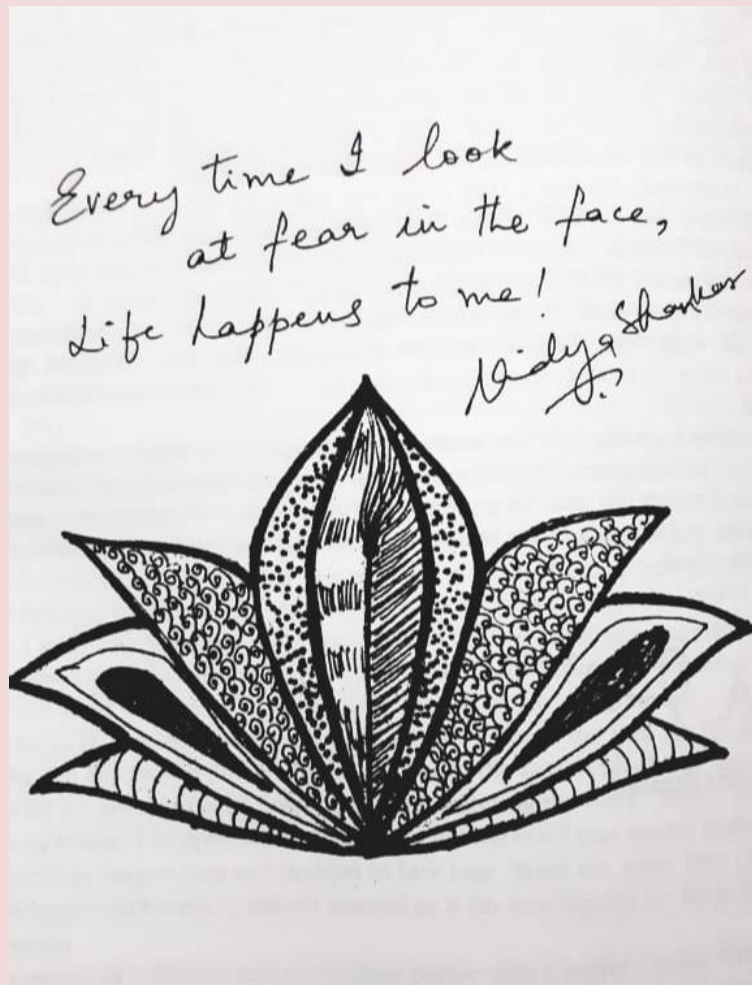 Every time I look
at fear in the face,
Life happens to me!
Vidya Shankar